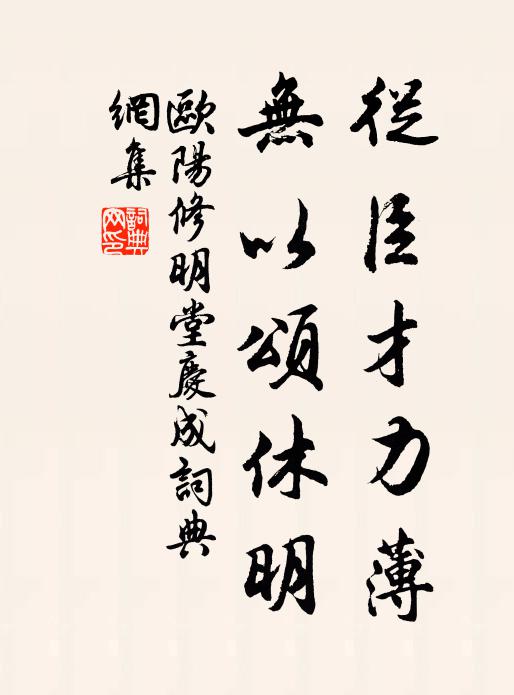 從臣才力薄
無以頌休明
歐陽修明堂慶成詞典
網集
詞典
网印